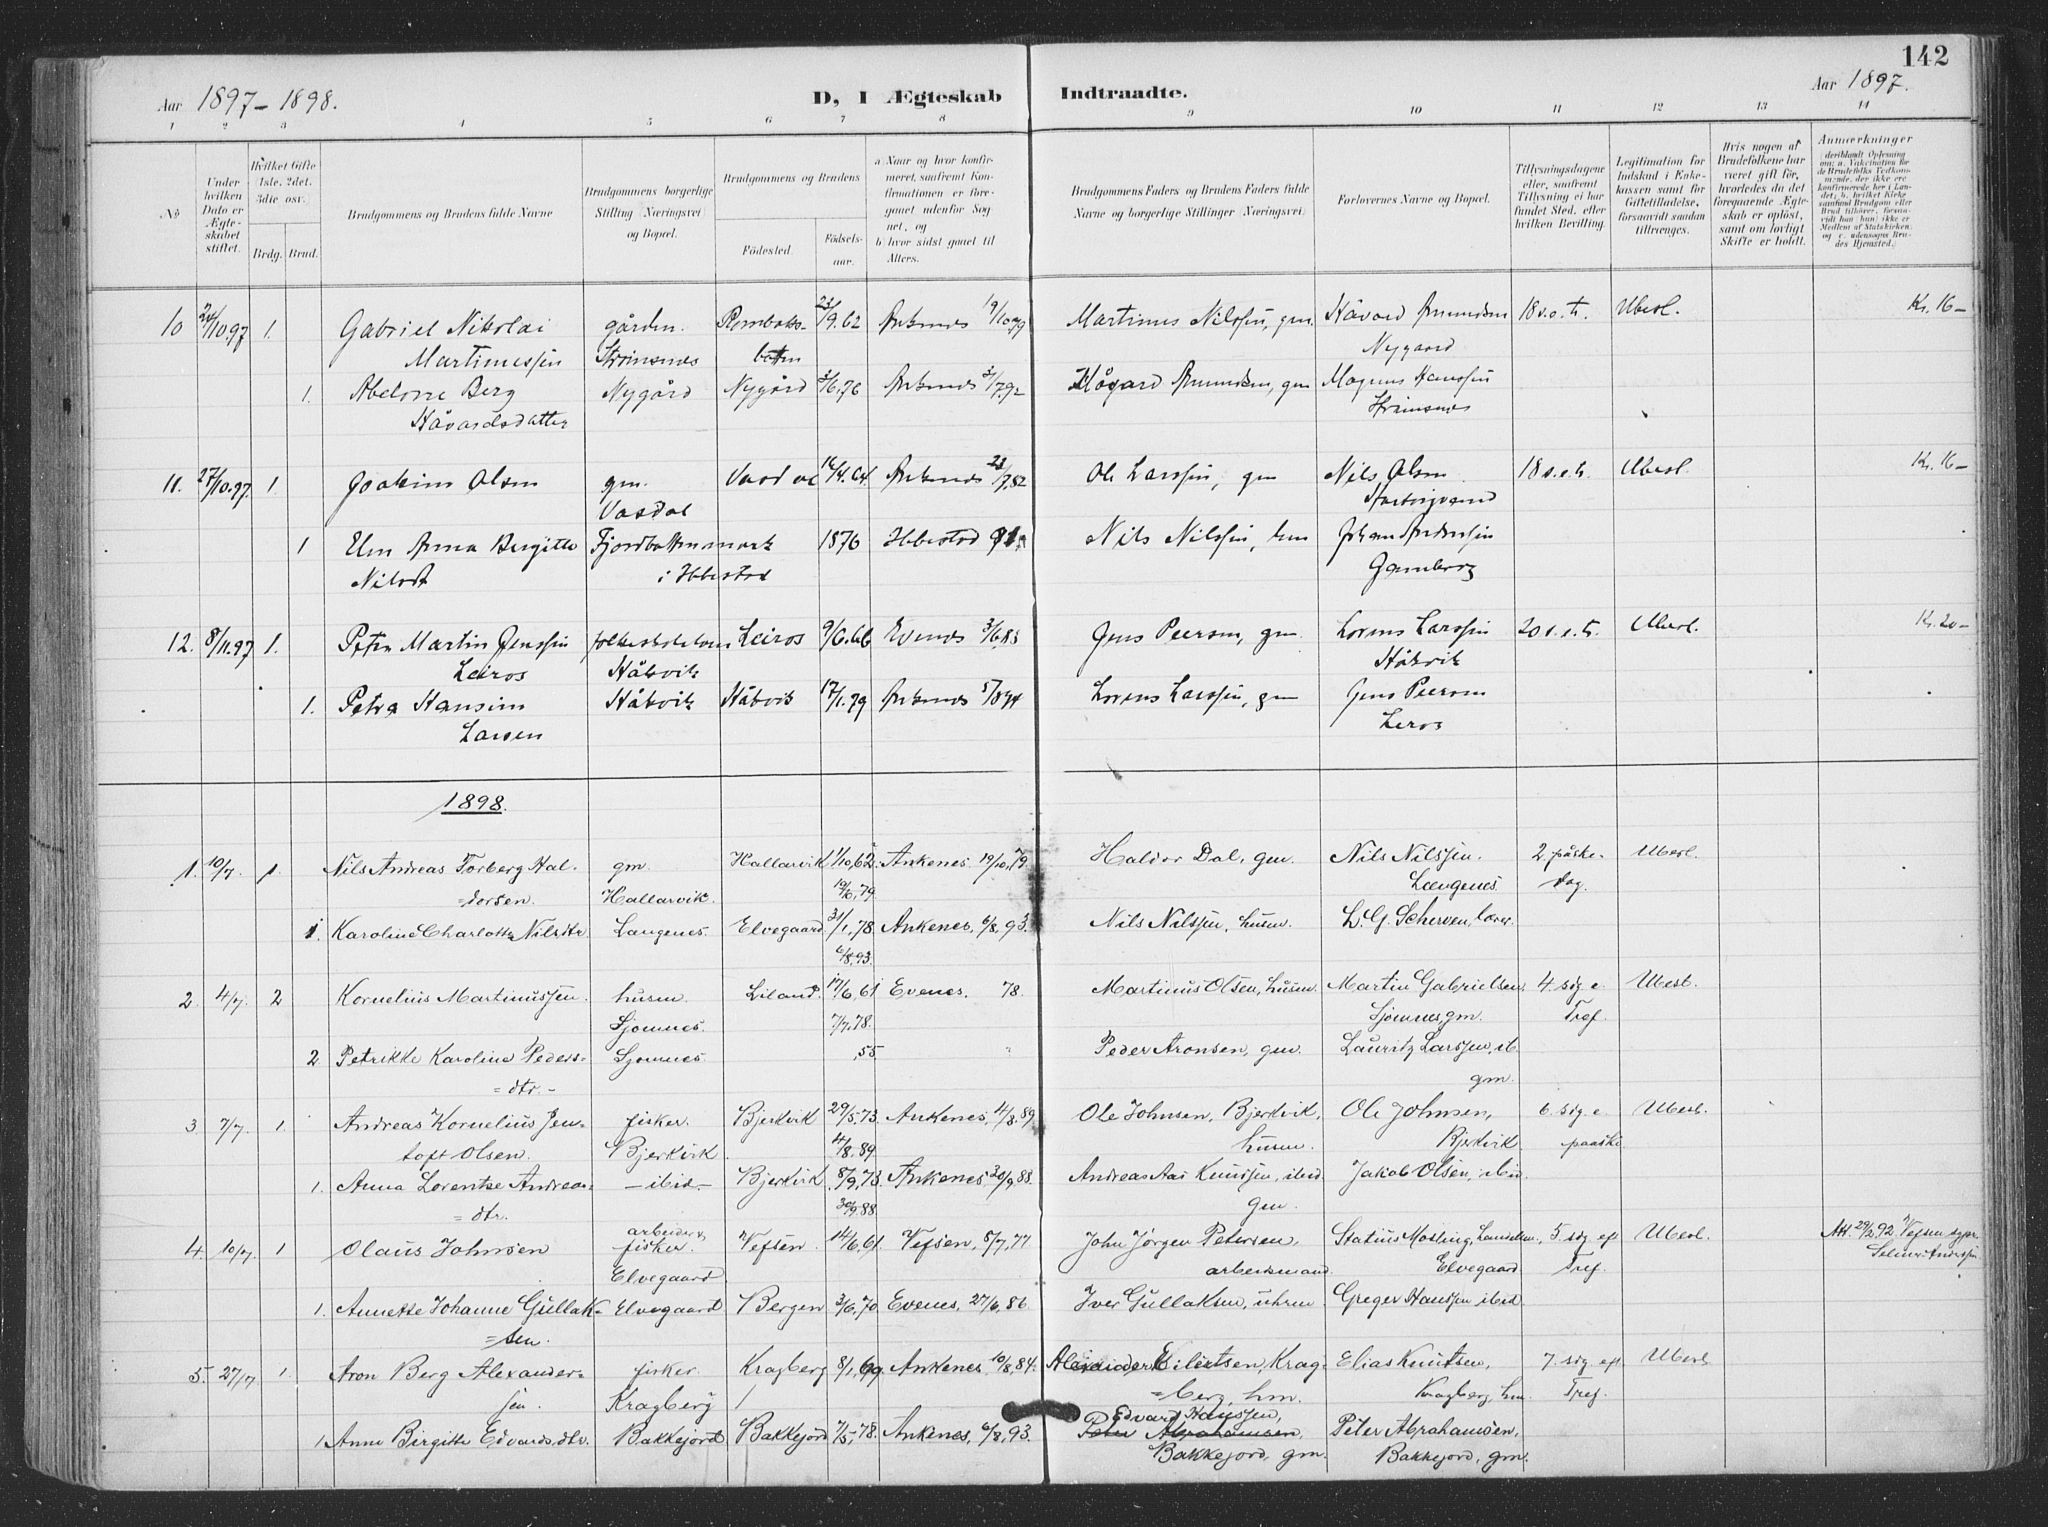 142
Aar 1897-1898.
D, I Ægteskab
Indtraadte.
Aar 1897.
1 2 3 4 5 6 7 8 9 10 11 12 13 14
No
Under hvilken Dato er Ægteskabet stiftet.
Hvilket Gifte 1ste, 2det, 3die osv.
Brdg. Brud.
Brudgommens og Brudens fulde Navne.
Brudgommens borgerlige Stilling (Næringsvei) og Bopæl.
Brudgommens og Brudens
Födested.
Födsels-aar.
a) Naar og hvor konfirmeret, saafremt Konfirmationen er foregaaet udenfor Sognet, og
b) hvor sidst gaaet til Alters.
Brudgommens Faders og Brudens Faders fulde Navne og borgerlige Stillinger (Næringsvei).
Forlovernes Navne og Bopæl.
Tillysningsdagene eller, saafremt Tillysning ei har fundet Sted, efter hvilken Bevilling.
Legitimation for Indskud i Enkekassen samt for Giftetilladelse, forsaavidt saadan tiltrænges.
Hvis nogen af Brudefolkene har været gift før, hvorledes da det foregaaende Ægteskab er oplöst, samt om lovligt Skifte er holdt.
Anmærkninger
10 10.97 1. Gabriel Nikolai gården. Rombaks- 23/9.62 Ankenes 19/10 79 Martinus Nilssen, gm. Håvard Amundsen 18 s.e.tr. Uberl. Kr. 16-
Martinussen Strømsnes botn Nygaard
1. Abelone Berg Nygård Nygård 3/6.76 Ankenes 3/7.92 Håvard Amundsen, gm Magnus Hanssen
Håvardsdatter Strømsnes
11. 27/10.97 1 Joakim Olsen gm. 16/4.64 Ankenes 23/7.82 Ole Larssen, gm Nils Olsen 18 s.e.tr. Uberl. Kr. 16-
Vasdal Hartvigvand
1 Elen Anna Bergitte Fjordbotnmark 1876 Ibbestad 91 Nils Nilssen, Johan Andersen
Nilsdt i Ibbestad
12. 8/11.97 1. Peter Martin Jenssen Leiros 9/6.66 Evenes 3/6.83 Jens Peersen, gm. Lorens Larssen 20 s.e.tr. Uberl. Kr. 20-
Leiros Håkvik Håkvik
1. Petra Hansine Håkvik Håkvik 17/1.79 Ankenes 5/8 94 Lorens Larssen, gm Jens Peersen
Larsen Leros
1898.
1. 10/7 1. Nils Andreas Torberg Hal- gm. Hallarvik 1/10,62. Ankenes 19/10,79. Haldor Dal, gm. Nils Nilssen. 2. påske- Uberl.
=dorsen. Hallarvik. 19/6,79. Langenes. dag.
1. Karoline Charlotte Nilsdtr. Langenes. Elvegaard 31/1,78 Ankenes, 6/8,93. Nils Nilssen, husm. L. G. Scherven,
6/8,93.
2. 4/7. 2 Kornelius Martinussen. husm. Liland. 17/6,61 Evenes. 78. Martinus Olsen, husm. Martin Gabrielsen, 4. sdg e. Uberl.
Sjomnes. 7/7.78. Sjomnes, gm. Tref.
2 Petrikke Karoline Peders- Sjomnes ,55 " Peder Aronsen, gm. Lauritz Larssen, ib.
=dtr.- gm.
3 7/7. 1. Andreas Kornelius Jen- fisker. Bjerkvik 29/5.73. Ankenes, 4/8.89. Ole Johnsen, Bjerkvik, Ole Johnsen, 6. sdg e. Uberl.
toft Olsen. Bjerkvik. 4/8.89. husm. Bjerkvik paaske
1. Anna Lorentse Andreas- -ibid- Bjerkvik 8/9,73. Ankenes, 30/9 88. Andreas Aas Knudssen, ibid. Jakob Olsen, ibid.
=dtr. 30/9.88. gm.
4. 10/7 1 Olaus Johnsen arbeider & fisker. Vefsen. 14/6,61. Vefsen, 8/7,77 John Jørgen Petersen, Statius Mosling, 5. sdg eft Uberl. Att. 29/2,92 Vefsen
Elvegaard arbeidsmand. Elvegaard. Tref.
1. Annette Johanne Gullak- Elvegaard Bergen 3/6,70 Evenes, 27/6,86. Iver Gullaksen, Greger Hanssen ibid
=sen.
5. 27/7 1. Aron Berg Alexander- fisker. Kragberg 8/1,69. Ankenes, 10/8,84. Alexander Eilertsen, Krag- Elias Knutsen, 7. sdg eft Uberl.
sen. Kragberg =berg, hm. Kragberg, hm. Tref.
1. Anne Birgitte Edvardsdtr. Bakkejord Bakkejord 7/5,78. Ankenes, 6/8,93. Edvard Hanssen, Peter Abrahamsen, Peter Abrahamsen,
Bakkejord, gm. Bakkejord, gm.